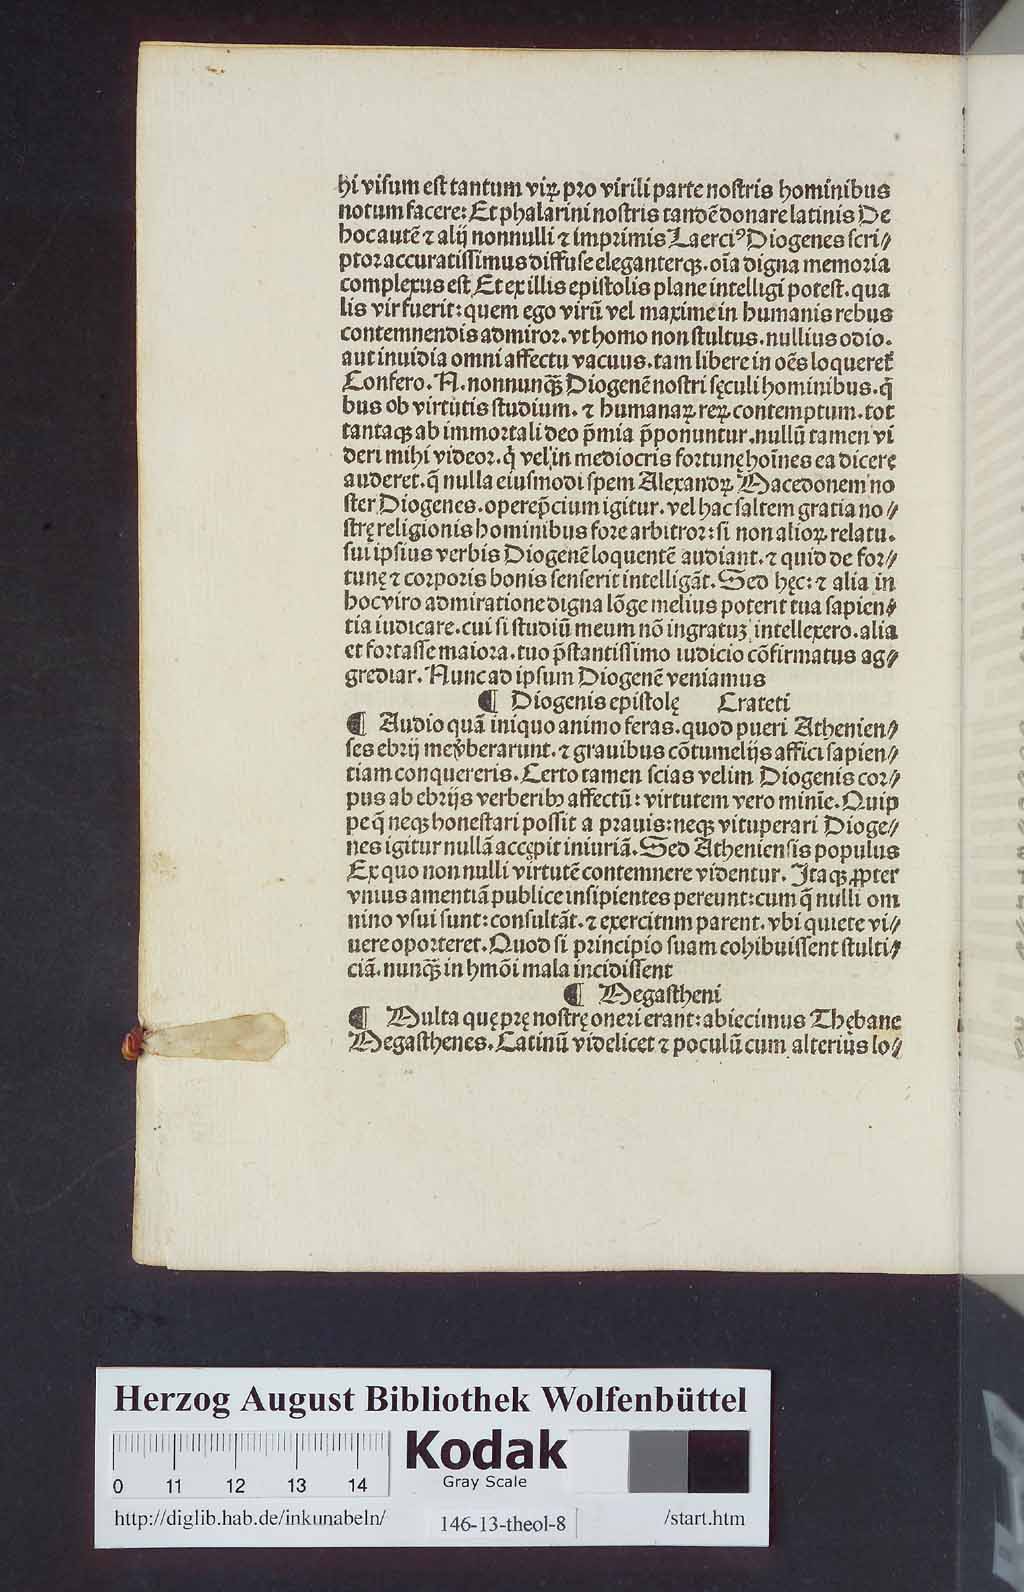 hi visum est tantum viꝝ pro virili parte nostris hominibus
notum facere: Et phalarini nostris tandē donare latinis De
hoc autē ⁊ alij nonnulli ⁊ imprimis Laerciꝰ Diogenes scri⸗
ptor accuratissimus diffuse eleganterqꝫ. oīa digna memoria
complexus est Et ex illis epistolis plane intelligi potest. qua
lis vir fuerit: quem ego virū vel maxime in humanis rebus
contemnendis admiror. vt homo non stultus. nullius odio.
aut inuidia omni affectu vacuus. tam libere in oēs loqueret᷑
Confero. N. nonnunqꝫ̄ Diogenē nostri sęculi hominibus. q̄
bus ob virtutis studium. ⁊ humanaꝝ reꝝ contemptum. tot
tantaqꝫ ab immortali deo p̄mia p̄ponuntur. nullū tamen vi
deri mihi videor. q̇ vel in mediocris fortunę hoīnes ea dicere
auderet. q̄ nulla eiusmodi spem Alexandꝝ Macedonem no
ster Diogenes. operep̄cium igitur. vel hac saltem gratia no⸗
strę religionis hominibus fore arbitror: si non alioꝝ relatu.
sui ipsius verbis Diogenē loquentē audiant. ⁊ quid de for⸗
tunę ⁊ corporis bonis senserit intelligāt. Sed hęc: ⁊ alia in
hoc viro admiratione digna lōge melius poterit tua sapien⸗
tia iudicare. cui si studiū meum nō ingratuꝫ intellexero. alia
et fortasse maiora. tuo p̄stantissimo iudicio cōfirmatus ag⸗
grediar. Nunc ad ipsum Diogenē veniamus
¶ Diogenis epistolę Crateti
¶ Audio quā iniquo animo feras. quod pueri Athenien⸗
ses ebrij me v̓berarunt. ⁊ grauibus cōtumelijs affici sapien⸗
tiam conquereris. Certo tamen scias velim Diogenis cor⸗
pus ab ebrijs verberibꝰ affectū: virtutem vero minīe. Quip
pe q̄ neqꝫ honestari possit a prauis: neqꝫ vituperari Dioge⸗
nes igitur nullā accępit iniuriā. Sed Atheniensis populus
Ex quo non nulli virtutē contemnere videntur. Itaqꝫ ꝓpter
vnius amentiā publice insipientes pereunt: cum q̄ nulli om
nino vsui sunt: consultāt. ⁊ exercitnm parent. vbi quiete vi⸗
uere oporteret. Quod si principio suam cohibuissent stulti⸗
ciā. nunqꝫ̄ in hmōi mala incidissent
¶ Megastheni
¶ Multa quę prę nostrę oneri erant: abiecimus Thębane
Megasthenes. Catinū videlicet ⁊ poculū cum alterius lo⸗
Herzog August Bibliothek Wolfenbüttel
Kodak
Gray Scale
0 11 12 13 14
http://diglib.hab.de/inkunabeln/ 146-13-theol-8 /start.htm